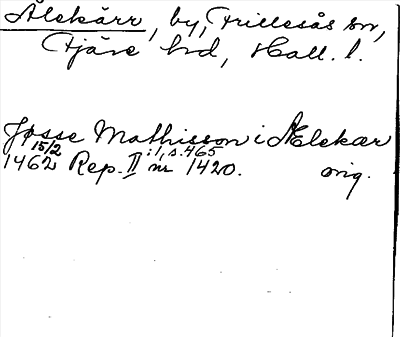 Ålekärr, by, Frillesås sn,
Fjäre hd, Hall. l.
Josse Mathisson i Ælekær
15/2 :1, s. 465
1462 Rep. II nr 1420. orig.